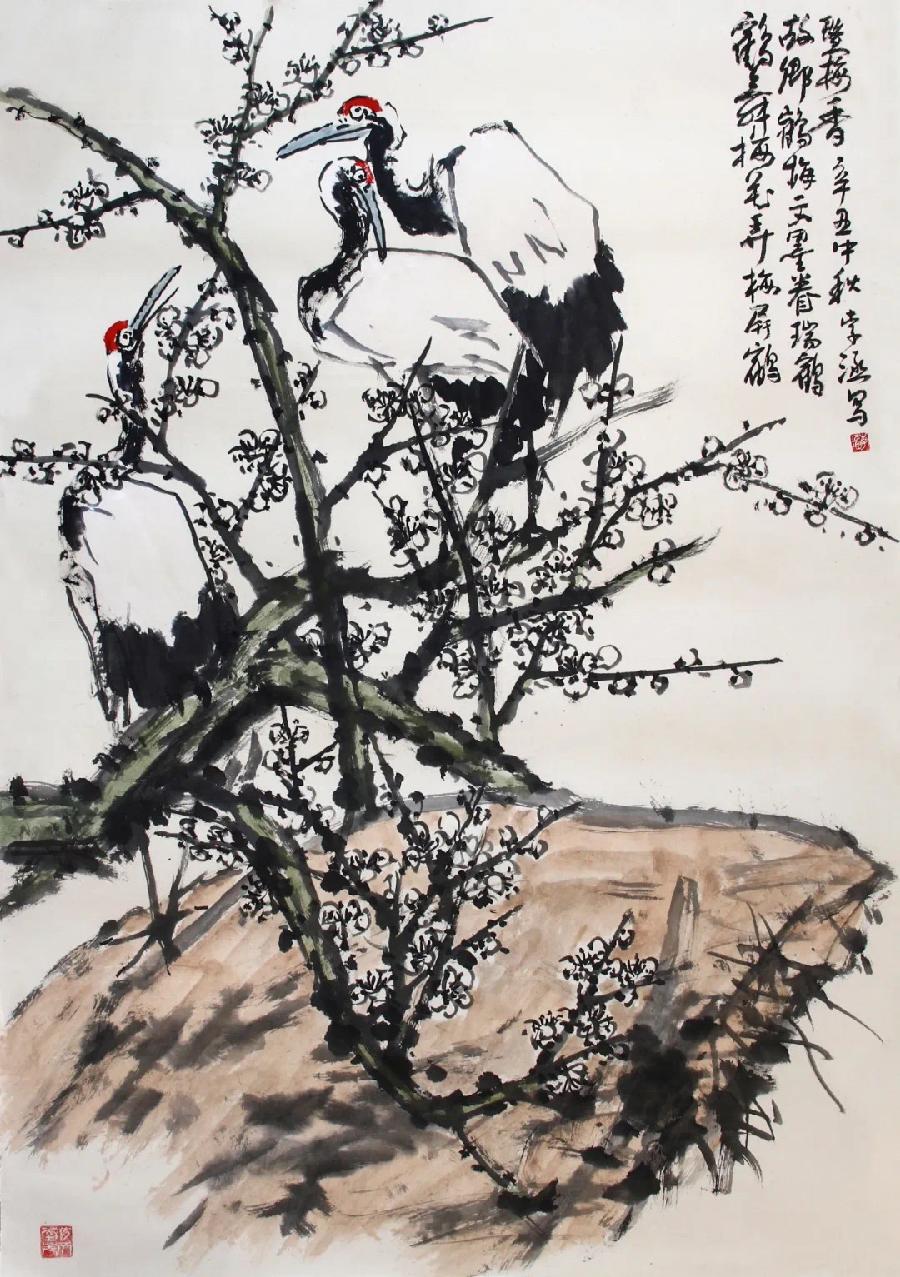 鶴舞梅花弄梅屏鶴
故鄉鶴梅文墨眷瑞鶴
梅香 辛丑中秋 涵写